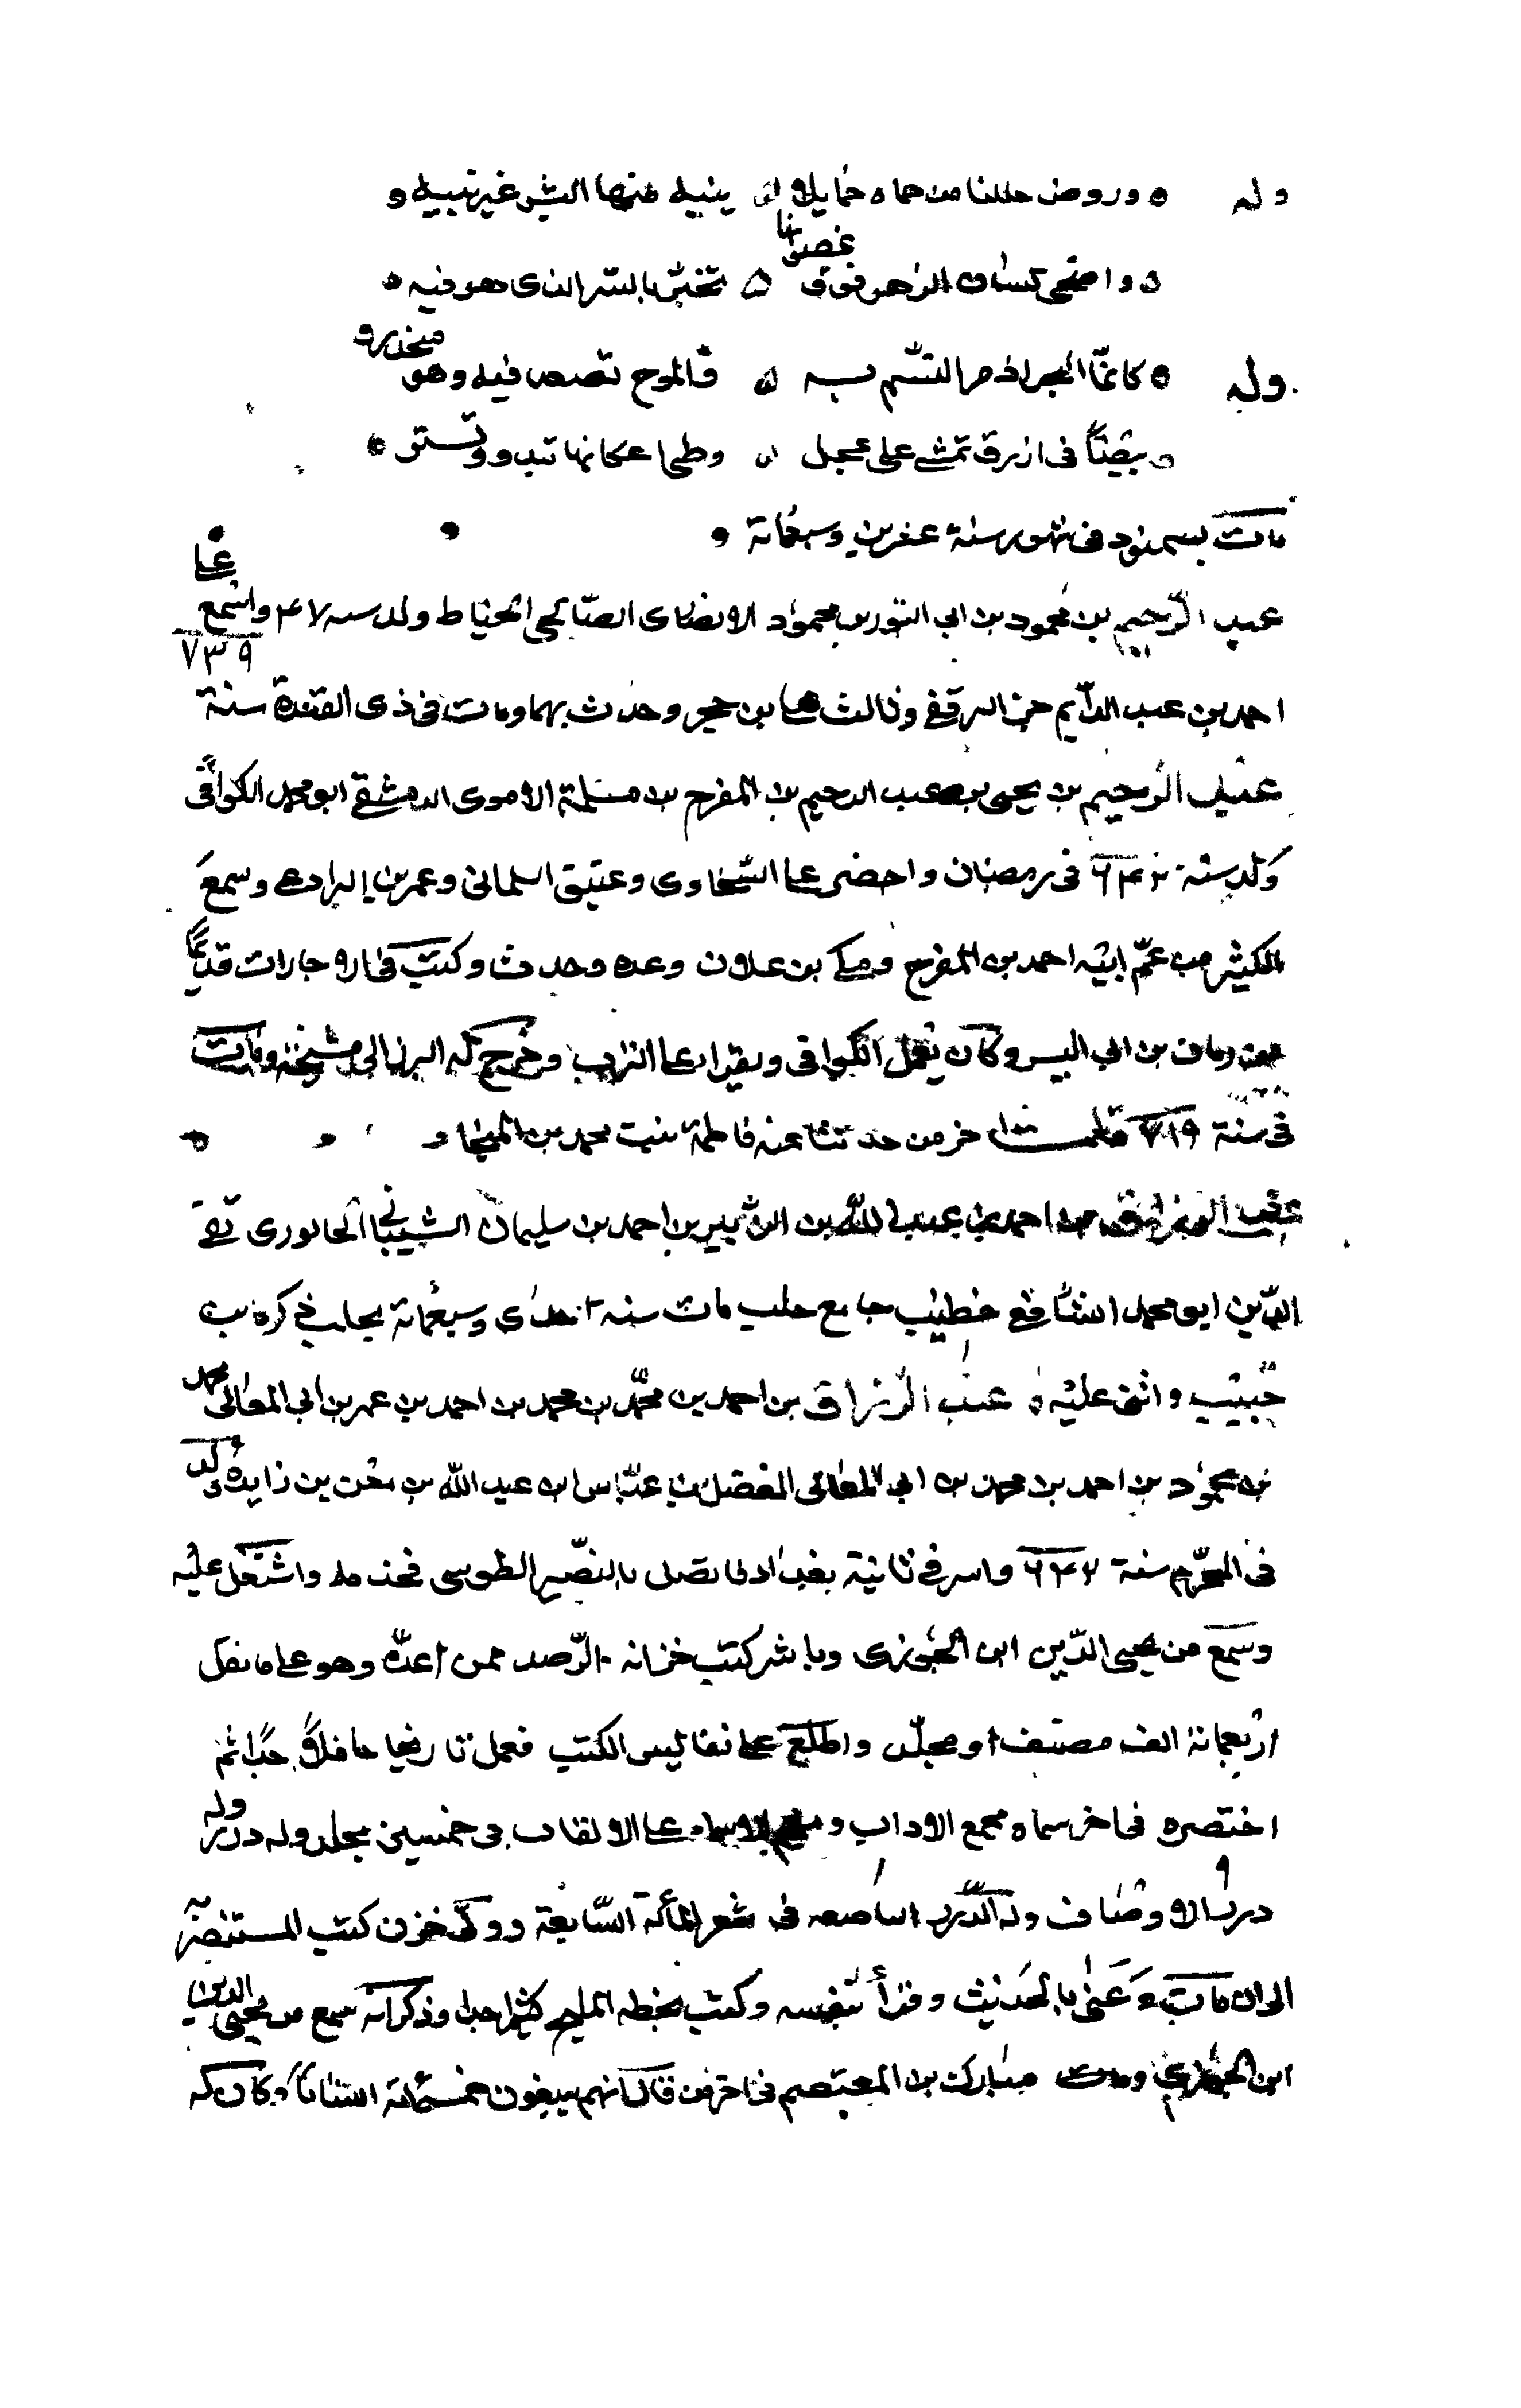 وله ه وروض حللنا من حماه خمايلا ه ينبيه منها النشر غير نبيه و
ه واضحى لسان الزهر فوق غصونها ه تخبر بالسر الذي هو فيه ه
وله ه كانما البحر اذ مر النسيم به ه والموج تصعد فيه وهو منحدر
ه بيضا في ازرق تمشي على عجل ه وطي اعكانها تبدو وتستتر ه
مات بسمنود في شهور سنة عشرين وسبعمائة ه
عبد الرحيم بن محمود بن ابي النور بن محمود الانصاري الصالحي الخياط ولد سنه ٤٧ واسمع على
احمد بن عبد الدايم جزء وثالث بن حجر وحدث بهما ومات في ذي القعدة سنة ٧٣٩
عبد الرحيم بن يحيى بن عبد الرحيم بن المفرح بن مسلمة الاموي الدمشقي ابو محمد الكوافي
ولد سنة ٦٤٢ في رمضان واحضر على السخاوي وعتيق السلماني وعمر بن البرادعي وسمع
الكثير من عم ابيه احمد بن المفرح ومكي بن علان وعده وحدث وكتب في الاجازات قديما
من زمان بن ابي اليسر وكان يعمل الكوافي ويقرا على الترب وخرج له البرزالي مشيخة ومات
في سنة ٧١٩ قلت اخر من حدثنا عنه فاطمة بنت محمد بن المنجا ه
عبد الرزاق بن احمد بن عبد الله بن الزبير بن احمد بن سليمان الشيباني الخابوري تقي
الدين ابو محمد الشافعي خطيب جامع حلب مات سنه احدى وسبعمائة بحلب ذكره بن
حبيب واثنى عليه ه عبد الرزاق بن احمد بن محمد بن محمد بن احمد بن عمر بن ابي المعالي محمد
بن محمود بن احمد بن محمد بن ابي المعالي المفضل بن عباس بن عبد الله بن معن بن زايده ولد
في المحرم سنة ٦٤٢ واسر في ثانية بغداد فاتصل بالنصير الطوسي فخدمه واشتغل عليه
وسمع من محيي الدين ابن الجوزي وباشر كتب خزانه الرصد ممن اعده وهو على ما نقل
اربعمائة الف مصنف او مجلد واطلع على نفايس الكتب فعمل تاريخا حافلا جدا ثم
اختصره في اخر سماه مجمع الاداب و الاسماء على الالقاب في خمسين مجلد وله درر وله
درر الاوصاف وله الدرر الناصعه في شعر المأئة السابعة وولي خزن كتب المستنصرية
الى ان مات وعنى بالحديث وقرأ بنفسه وكتب بخطه المليح كثيرا جدا وذكر انه سمع من محيي الدين
ابن الجوزي ومن مبارك بن المعتصم في اخرين قال انهم يبلغون خمسمائة انسانا وكان له